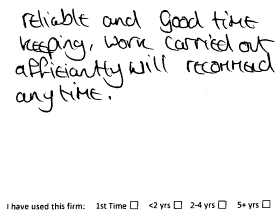 reliable and good time
keeping, work carried out
afficiantly will recommend
any time.
I have used this firm: 1st Time ☐ <2 yrs ☐ 2-4 yrs ☐ 5+ yrs ☐